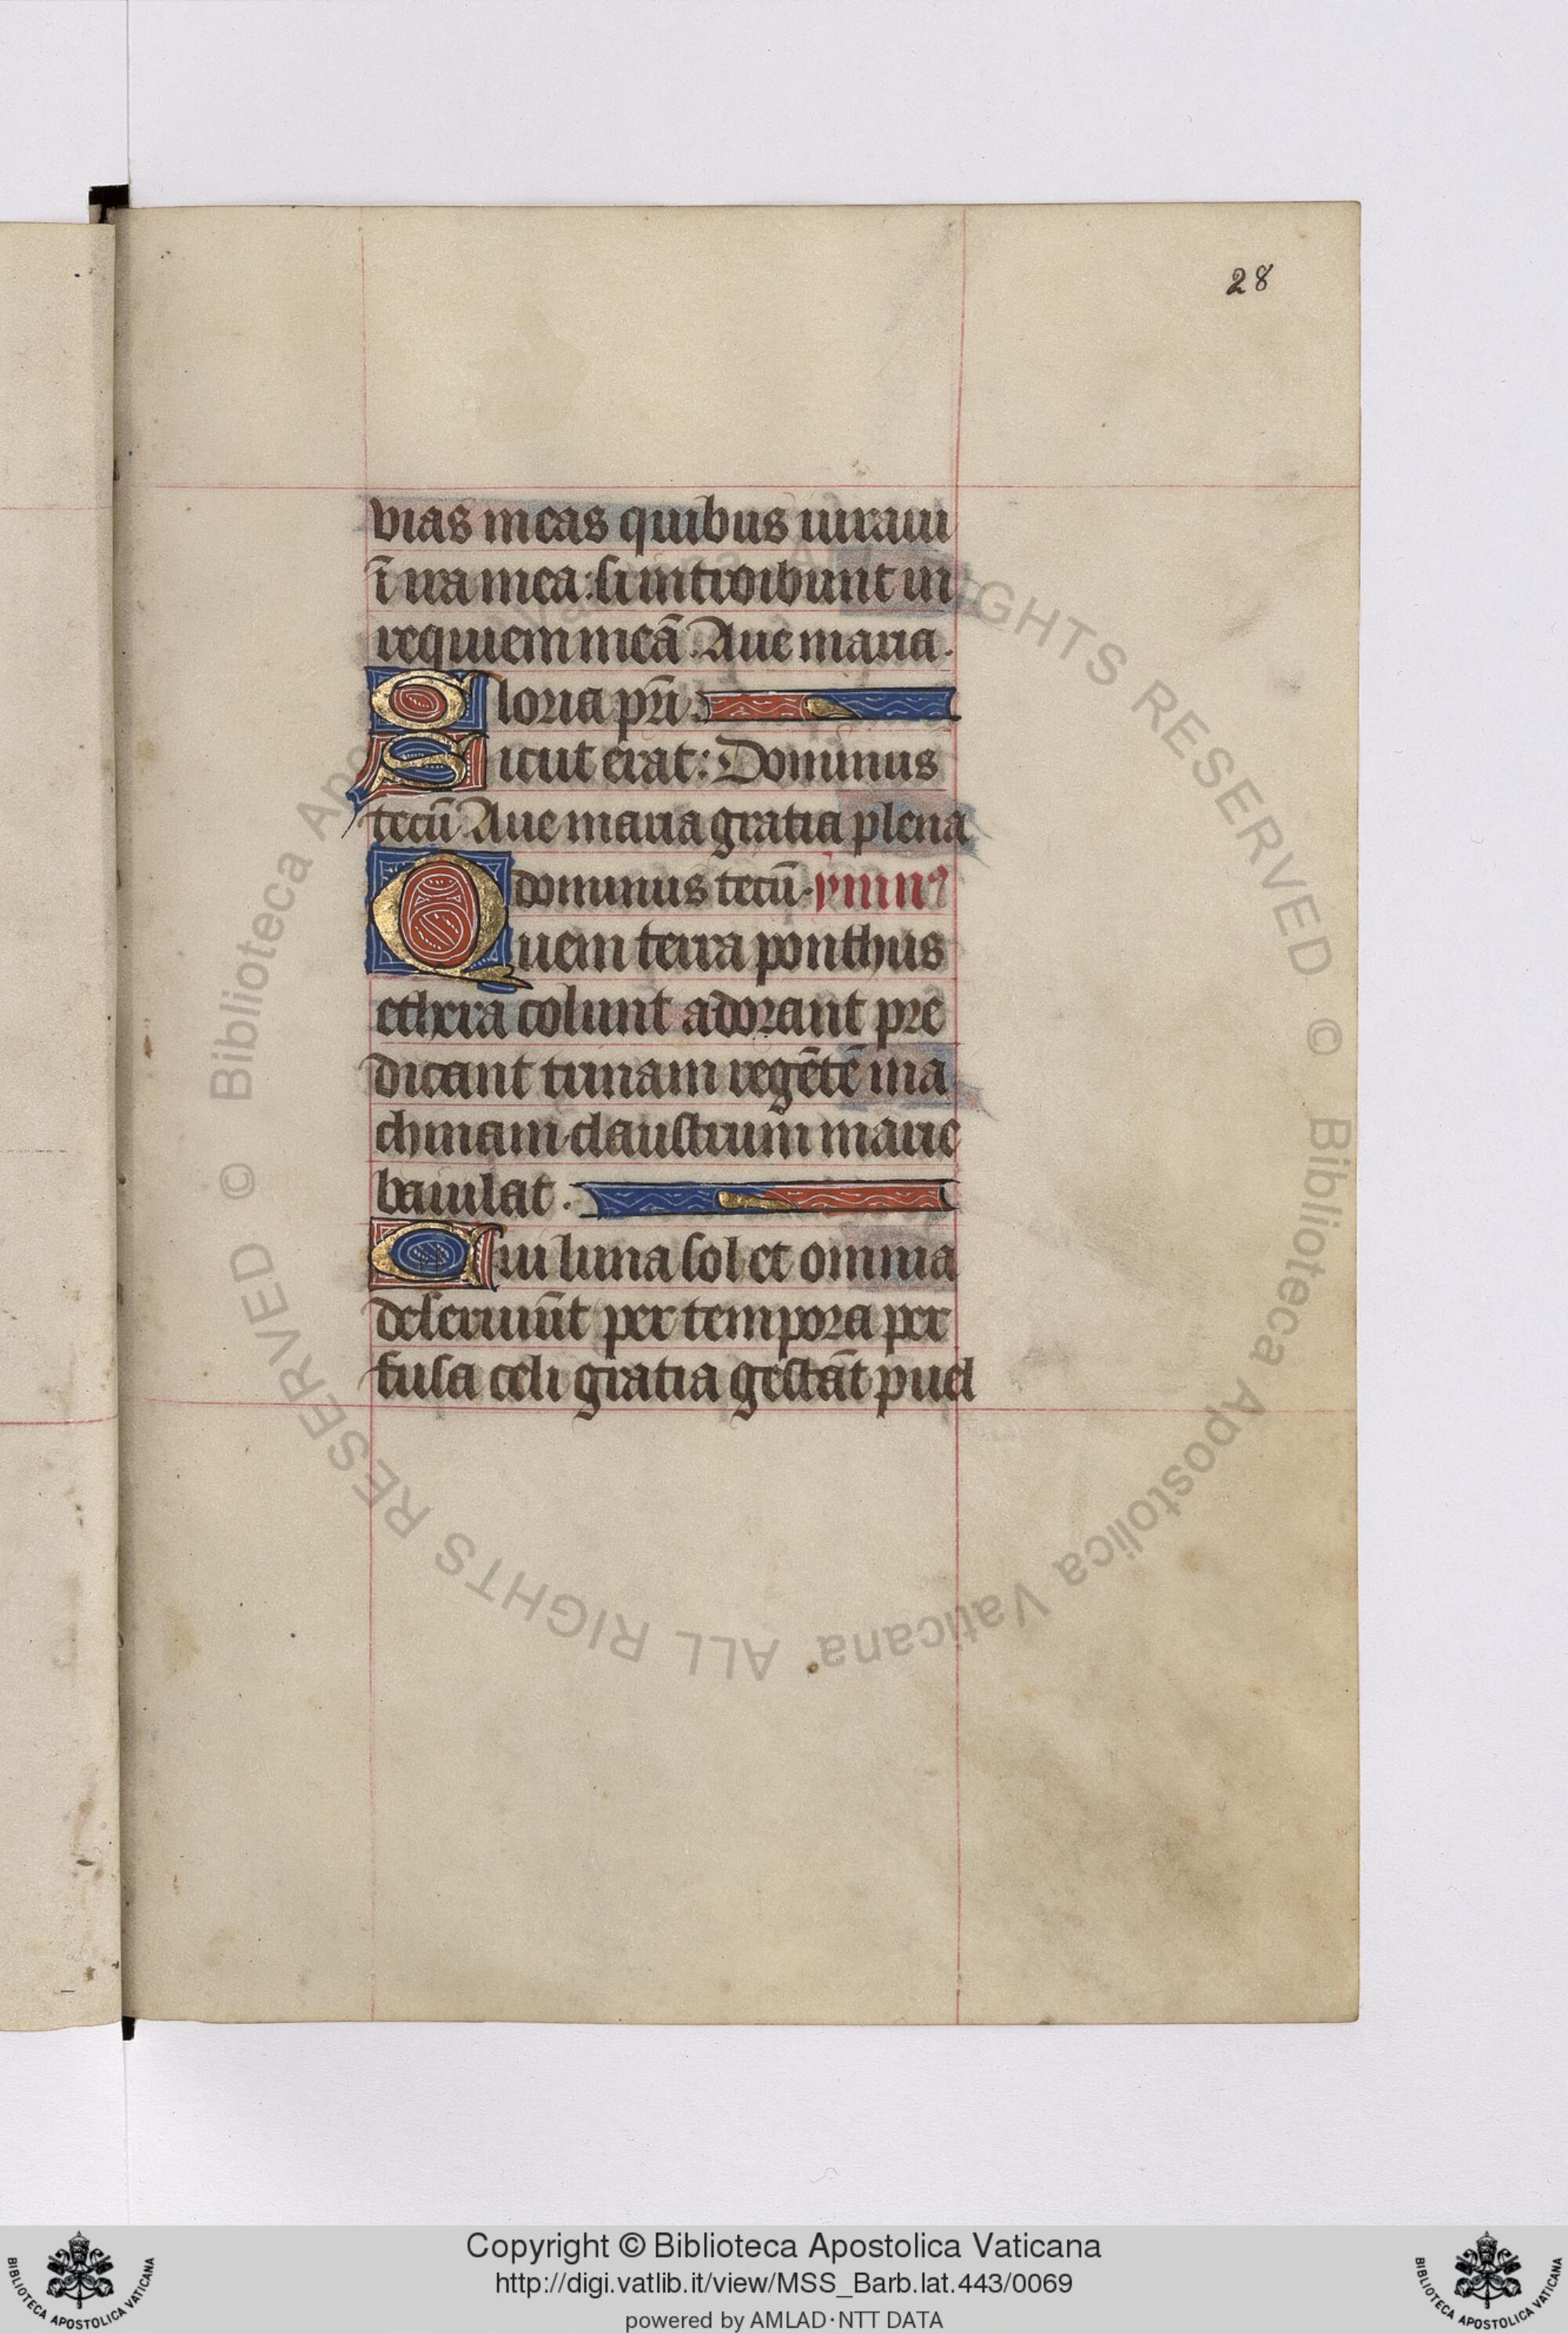 28
vias meas quibus iuraui
ī ira mea: si introibunt in
requiem meā. Aue maria.
Gloria pr̄i.
Sicut erat: Dominus
tecū Aue maria gratia plena
dominus tecū. ymnꝰ
Quem terra ponthus
ethera colunt adorant pre
dicant trinam regētē ma
chinam claustrum marie
baiulat.
Cui luna sol et omnia
deseruiūt per tempora per
fusa celi gratia gestāt puel
© Biblioteca Apostolica Vaticana ALL RIGHTS RESERVED
© Biblioteca Apostolica Vaticana ALL RIGHTS RESERVED
Copyright © Biblioteca Apostolica Vaticana
http://digi.vatlib.it/view/MSS_Barb.lat.443/0069
powered by AMLAD·NTT DATA
BIBLIOTECA APOSTOLICA VATICANA
BIBLIOTECA APOSTOLICA VATICANA